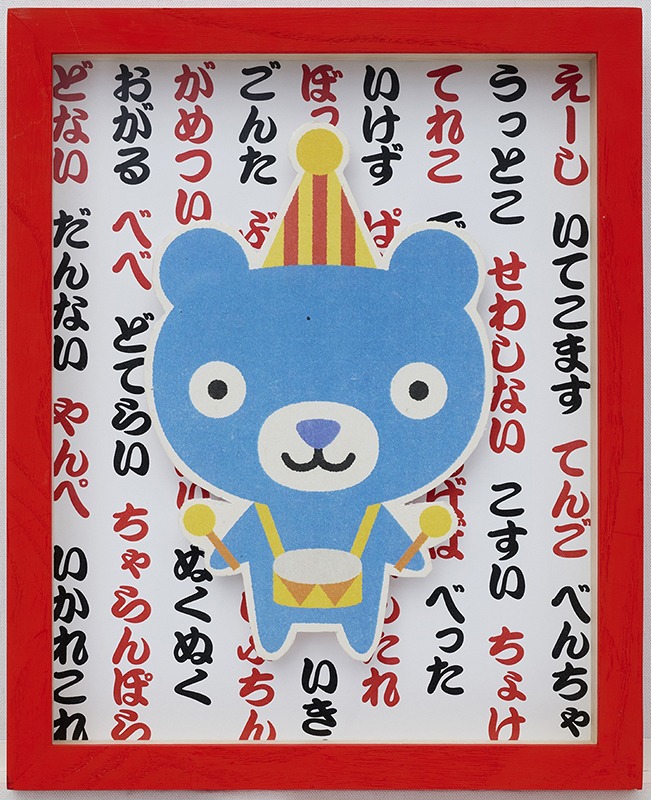 えーし いてこます てんご べんちゃ
うっとこ せわしない こすい ちょけ
てれこ べった
いけず ぱ たれ
ぼっ いき
ごんた ぶ ちん
がめつい ぬくぬく
おがる べべ どてらい ちゃらんぽら
どない だんない やんぺ いかれこれ